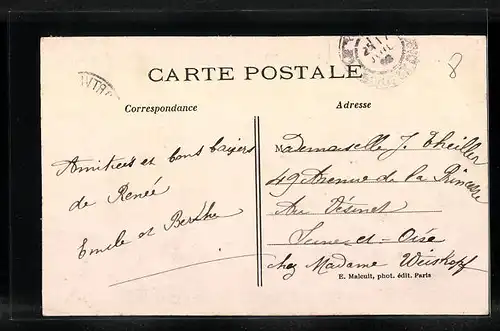 CARTE POSTALE
Correspondance
Adresse
Amitiées et bons baisers
de Renée
Emile et Berthe
Mademoiselle J. Theiller
49 Avenue de la Princesse
Au Vésinet
Seine-et-Oise
chez Madame Weiskopf
E. Malcuit, phot. édit. Paris
8